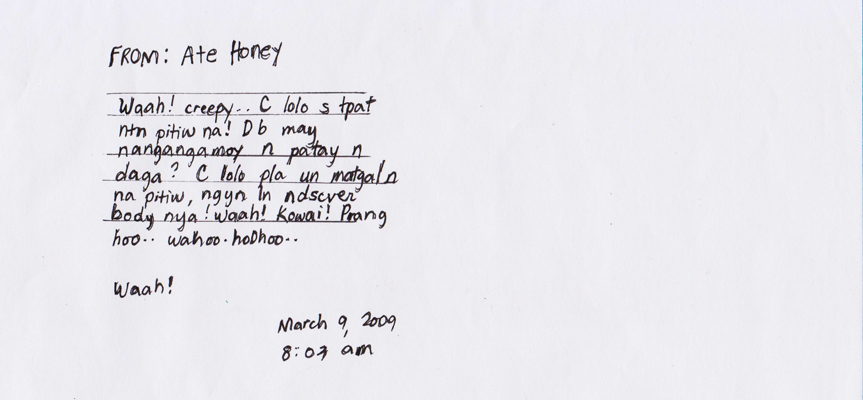 FROM: Ate Honey
Waah! creepy.. C lolo s tpat
ntn pitiw na! Db may
nangangamoy n patay n
daga? C lolo pla un matgaln
na pitiw, ngyn ln ndscver
body nya! waah! Kowai! Prang
hoo.. wahoo.hoohoo..
Waah!
March 9, 2009
8:03 am